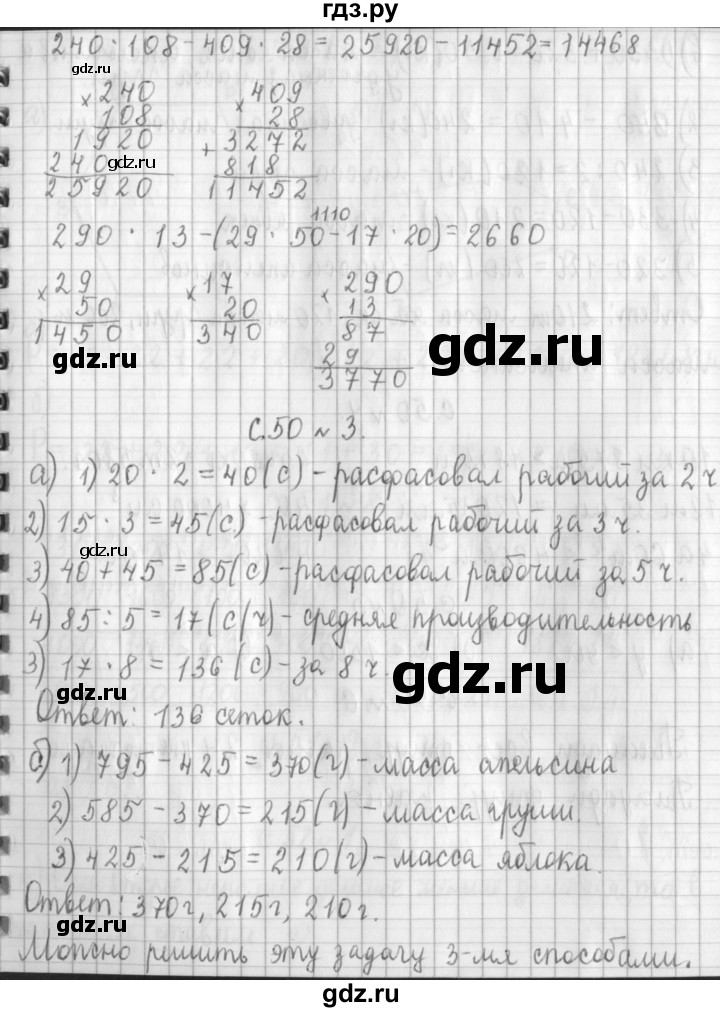 гдз.ру
240 · 108 - 409 · 28 = 25920 - 11452 = 14468
gdz.ru
× 240
108
1920
240
25920
gdz.ru
× 409
28
+ 3272
818
11452
1110
290 · 13 - (29 · 50 - 17 · 20) = 2660
× 29
50
1450
× 17
20
340
× 290
13
87
29
3770
gdz.ru
gdz.ru
С.50 № 3.
а) 1) 20 · 2 = 40 (с) - расфасовал рабочий за 2 ч
2) 15 · 3 = 45 (с) - расфасовал рабочий за 3 ч.
gdz.ru
3) 40 + 45 = 85 (с) - расфасовал рабочий за 5 ч.
4) 85 : 5 = 17 (с/ч) - средняя производительность
3) 17 · 8 = 136 (с) - за 8 ч.
gdz.ru
gdz.ru
Ответ: 136 сеток.
б) 1) 795 - 425 = 370 (г) - масса апельсина
2) 585 - 370 = 215 (г) - масса груши.
3) 425 - 215 = 210 (г) - масса яблока.
Ответ: 370 г, 215 г, 210 г.
gdz.ru
gdz.ru
Можно решить эту задачу 3-мя способами.
gdz.ru